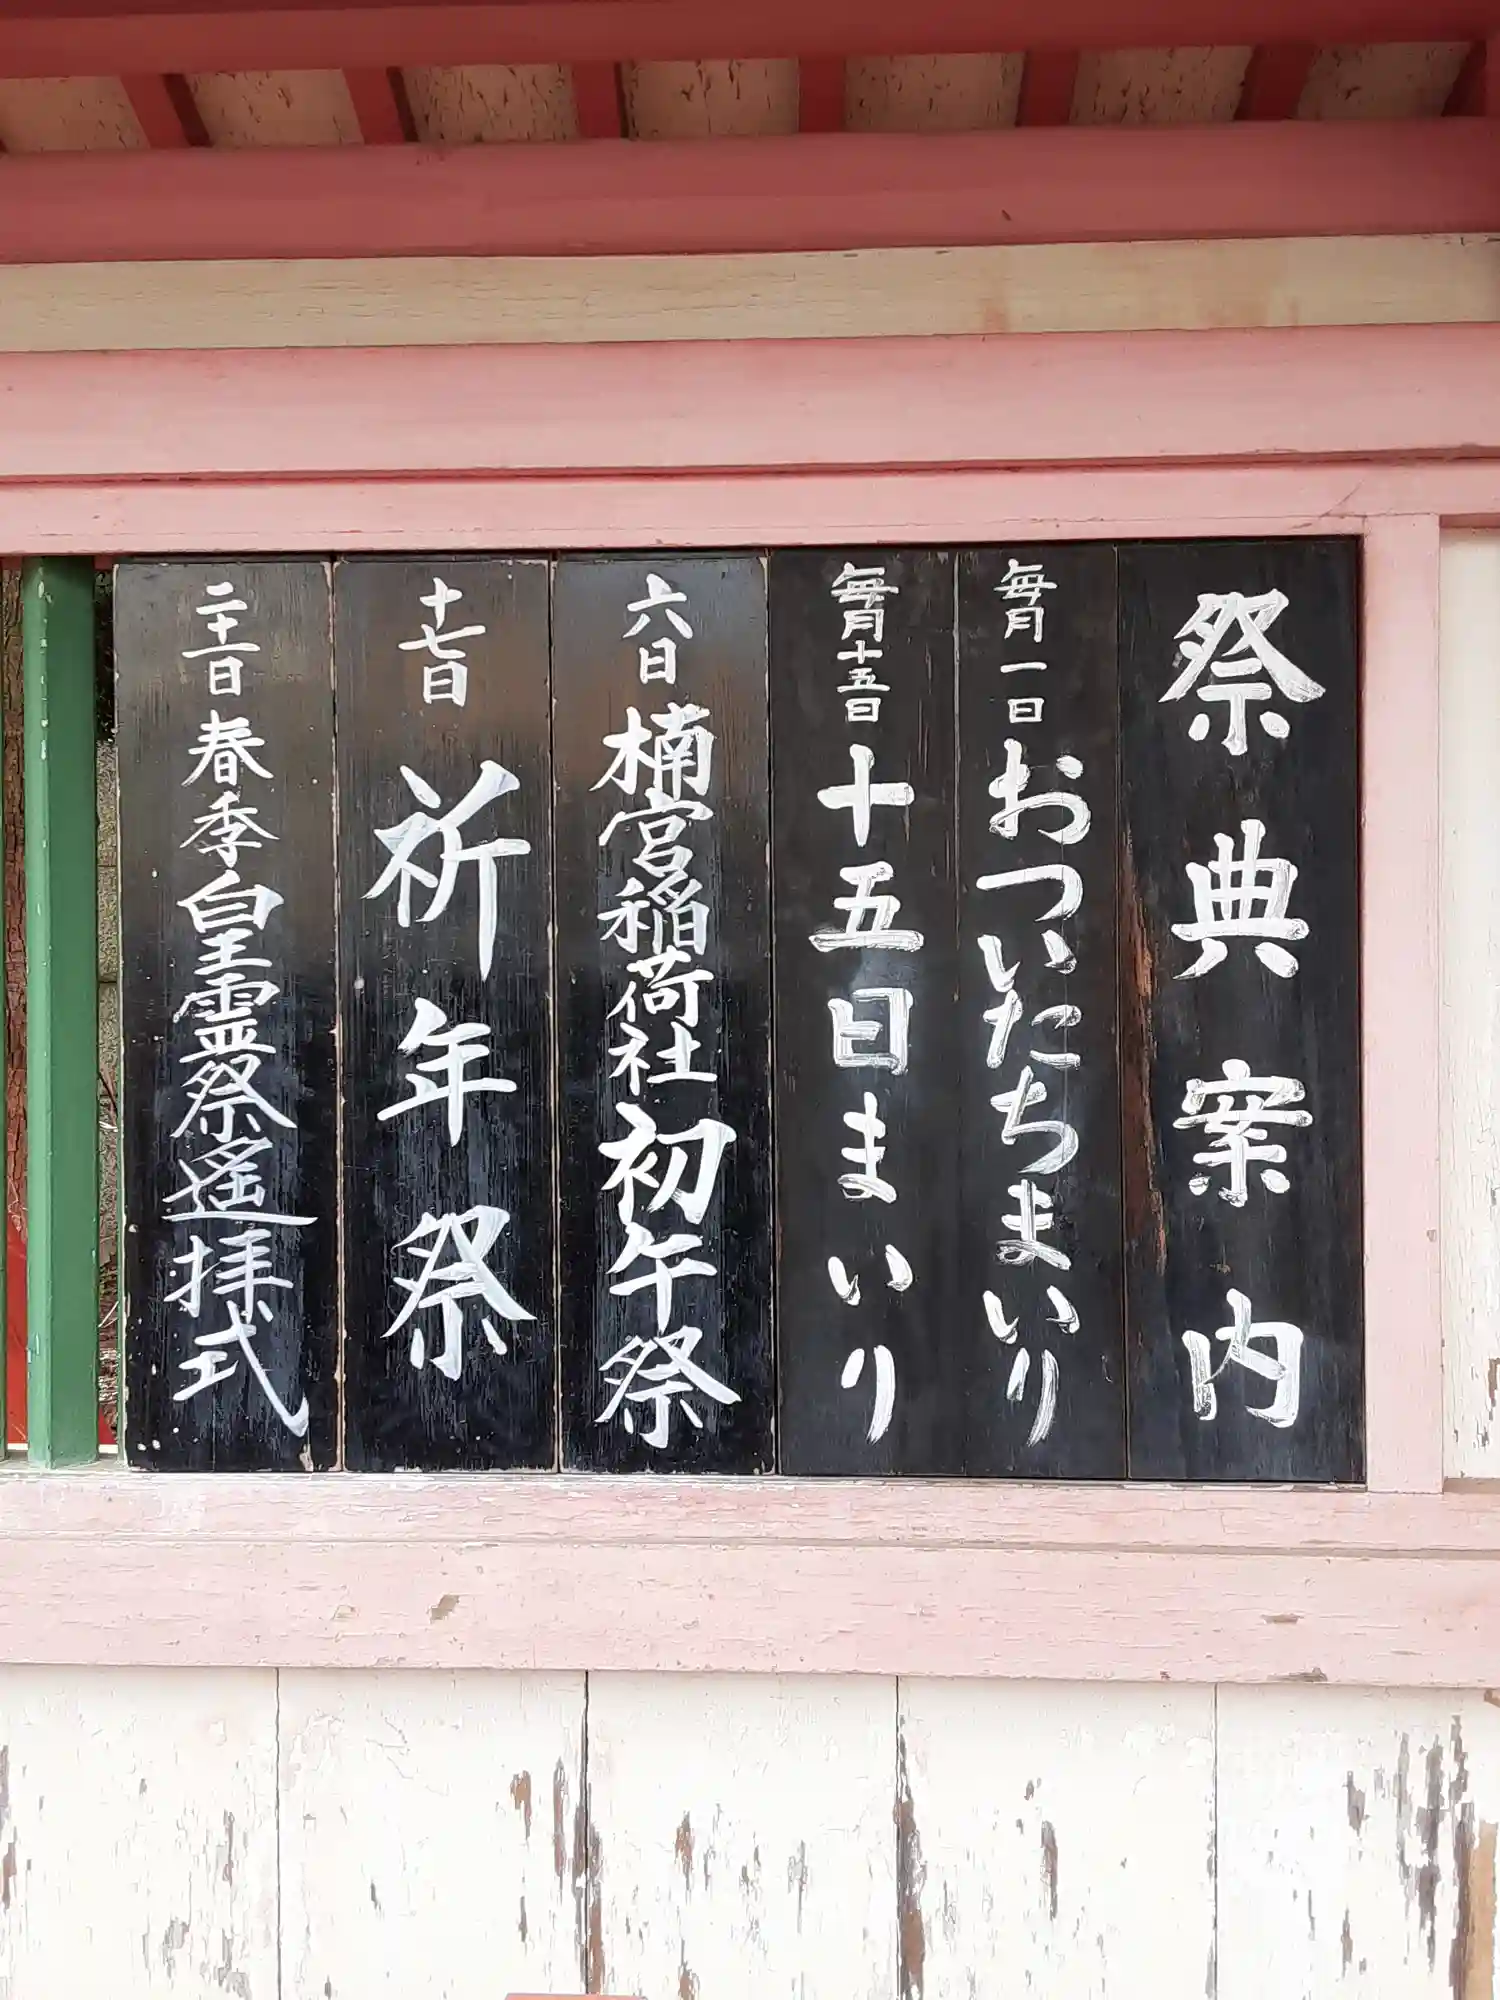 祭典案内
毎月一日 おついたちまいり
毎月十五日 十五日まいり
六日 楠宮稲荷社初午祭
十七日 祈年祭
二十一日 春季皇霊祭遙拝式